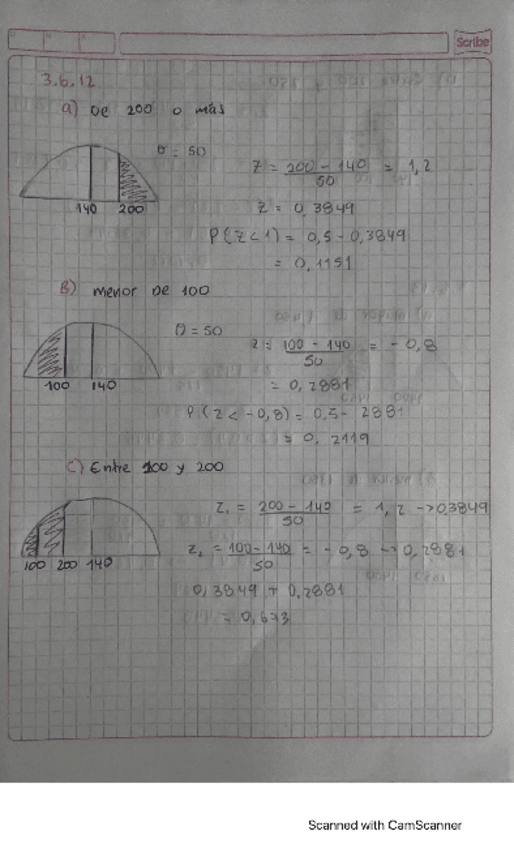 Scribe
3.6.12
a) De 200 o más
σ = 50
140 200
Z = 200 - 140 / 50 = 1,2
Z = 0,3849
P(Z<1) = 0,5 - 0,3849
= 0,1151
B) menor De 100
σ = 50
100 140
Z = 100 - 140 / 50 = - 0,8
= 0,2881
P(Z < -0,8) = 0,5 - 2881
= 0,2119
C) Entre 100 y 200
100 200 140
Z₁ = 200 - 140 / 50 = 1,2 → 0,3849
Z₂ = 100 - 140 / 50 = - 0,8 → 0,2881
0,3849 + 0,2881
= 0,673
Scanned with CamScanner